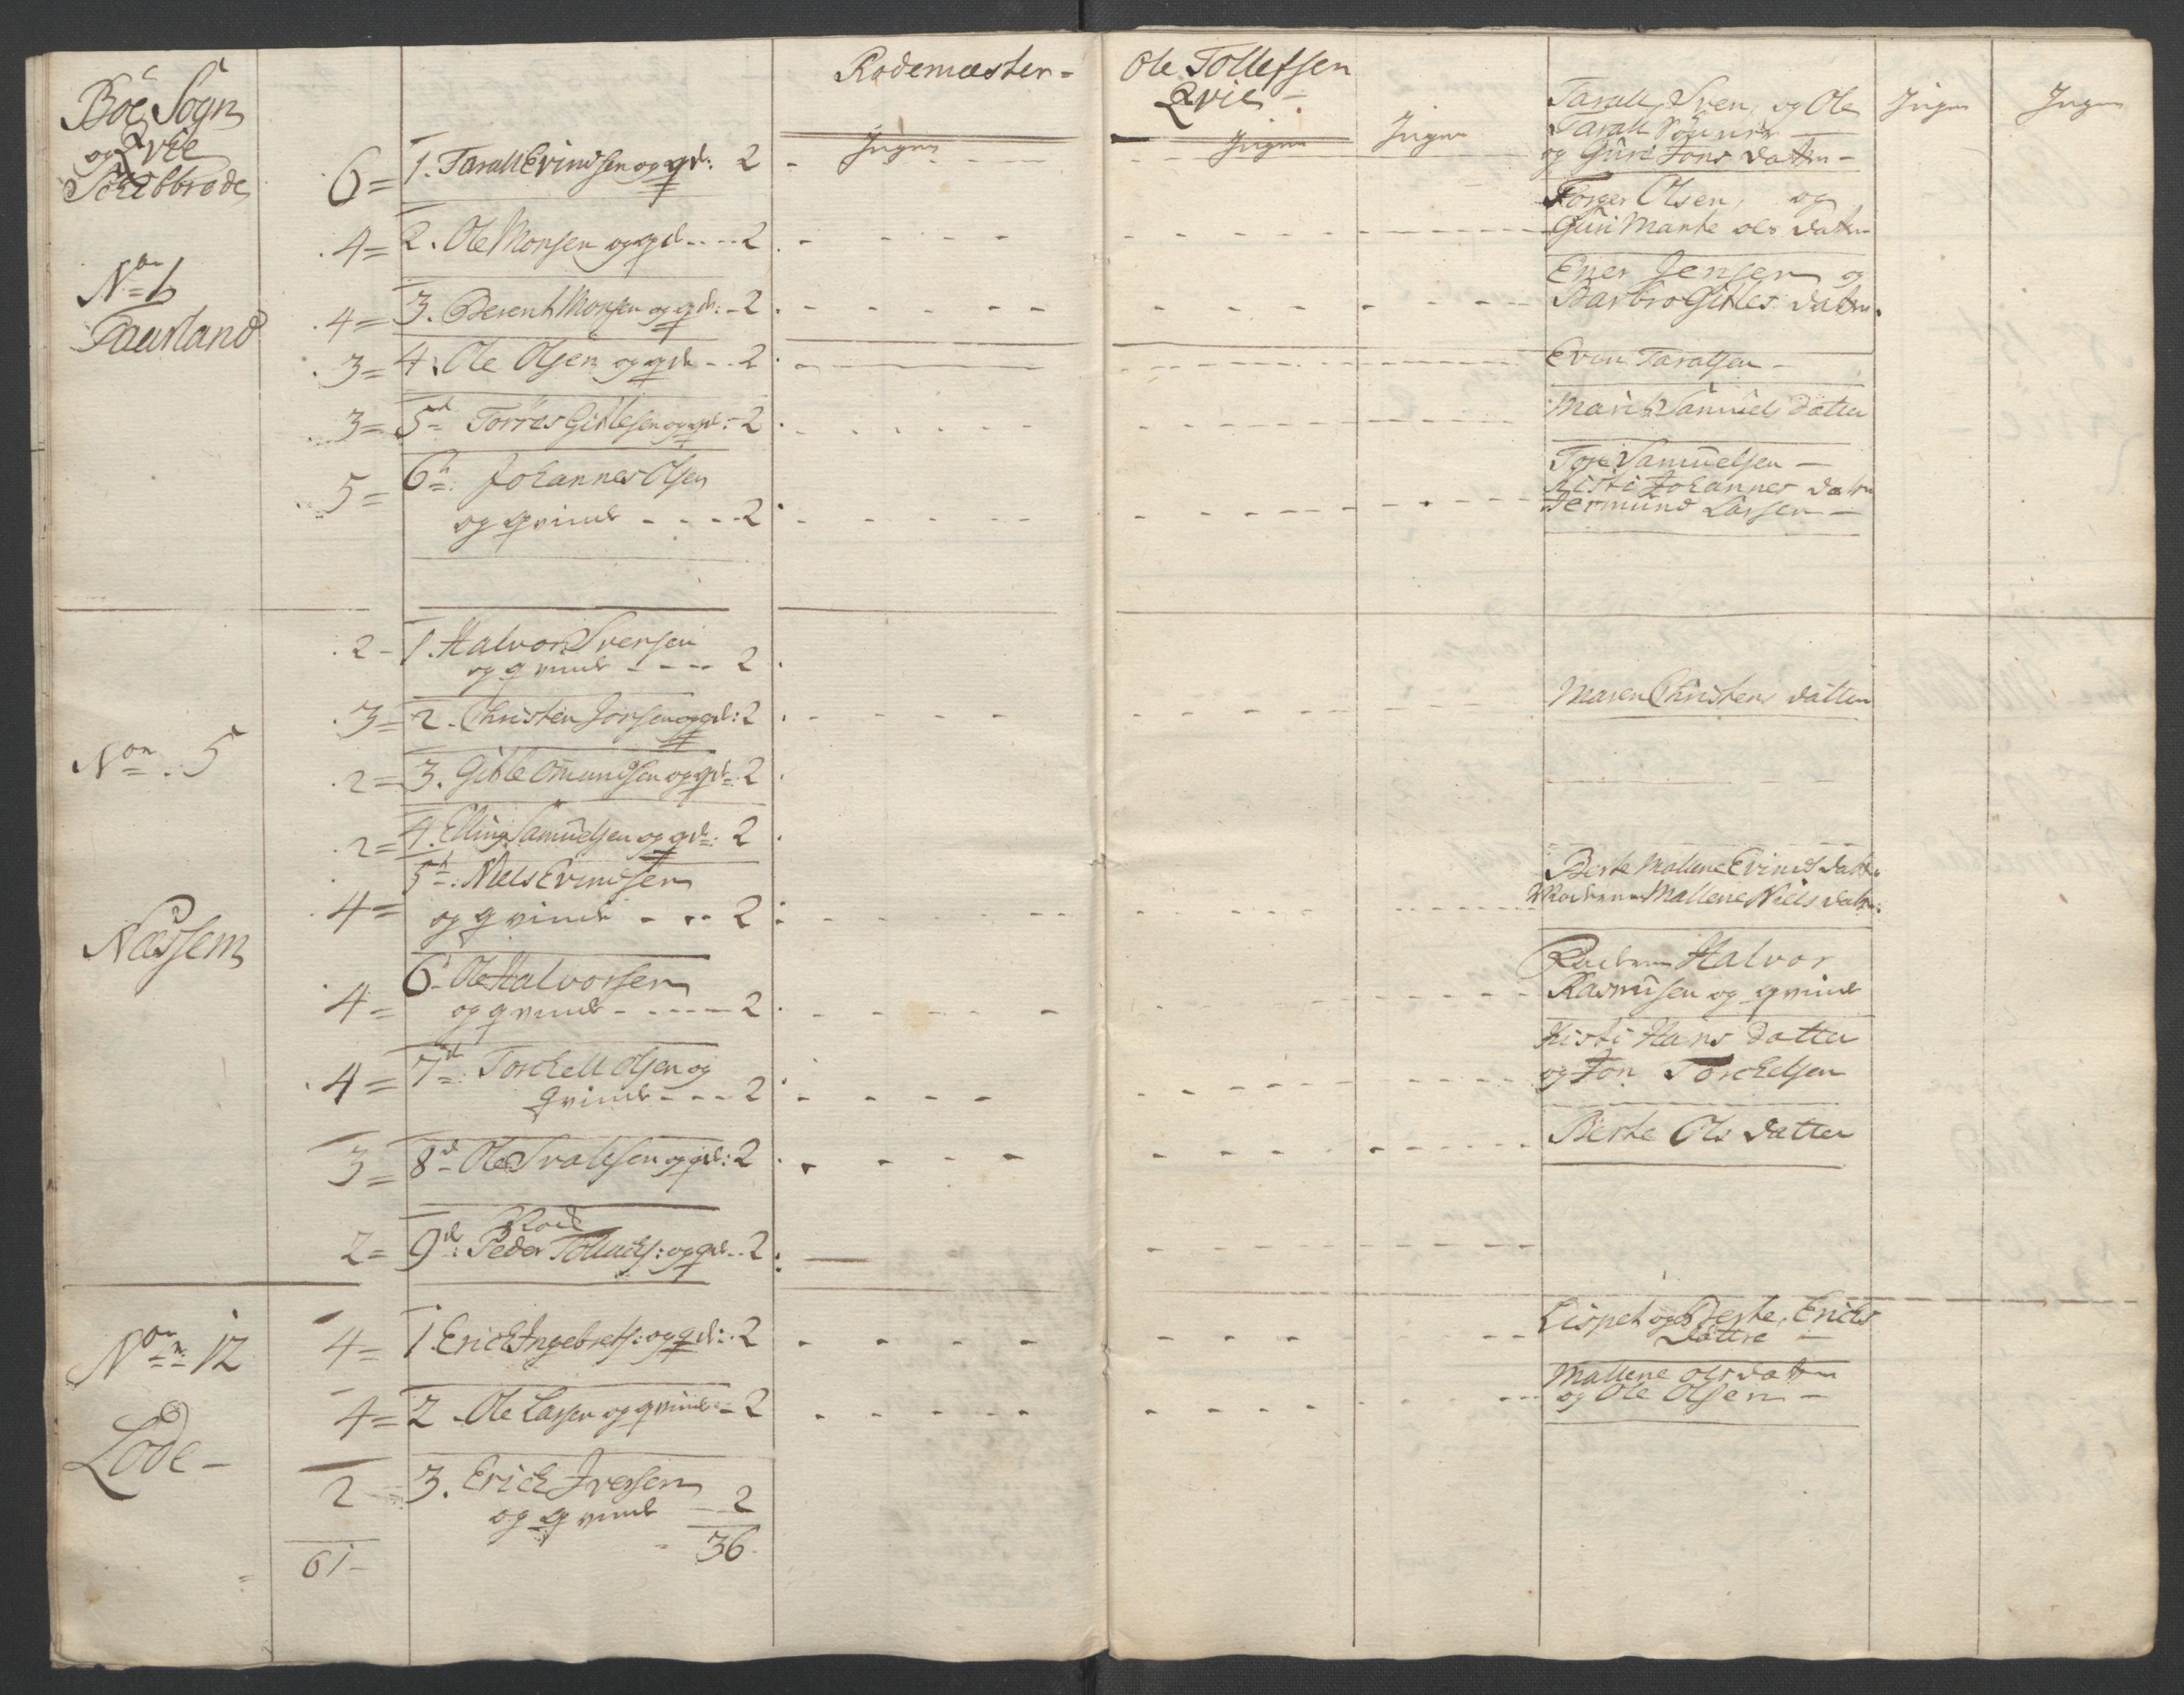 Rodemæster = Ole Tollefsen
Qvie
Boe Sogn
og Qvie
No 1
Gaarland
Ingen Ingen Ingen Ingen Ingen
6 = 1. Taral Evindsen og qd: 2
Taral, Sven, og Ole
Taral Sønner
og Guri Jons datter
4 = 2. Ole Monsen og qd 2
Torger Olsen, og
Guri Marte ols datter
4 = 3. Berent Monsen og qd: 2
Ener Jensen og
Barbro Gitles datter
3 = 4. Ole Olsen og qd 2
Evin Taralsen
3 = 5d Torres Gitlesen og qd: 2
Marit Samuels datter
5 = 6h: Johannes Olsen
og qvinde 2
Tore Samuelsen
Kisti Johannes datter
Jermund Larsen
No 5
Næssem
2 - 1. Halvor Svensen
og qvinde 2
3 = 2. Christen Jonsen og qd: 2
Maren Christens datter
2 = 3. Gitle Omundsen og qd 2
2 = 4. Elling Samuelsen og qd: 2
4 = 5h: Niels Evindsen
og qvinde 2
Berte Malene Evinds datter
Mallene Niels datter
4 = 6. Ole Halvorsen
og qvinde 2
Halvor
Rasmusen og qvinde
4 = 7d: Torckell Olsen og
qvinde 2
Kisti Hans datter
og Jon Torckelsen
3 = 8d Ole Svalesen og qd: 2
Berte Ols datter
2 = 9d: Peder : og qd 2
No 12
Lode
4 = 1 Erick Ingebrets: og qd: 2
Lispet og Berte Ericks
døttre
4 = 2. Ole Larsen og qvinde 2
Mallene ols datter
og Ole Olsen
2 = 3. Erick Iversen
og qvinde 2
61 36